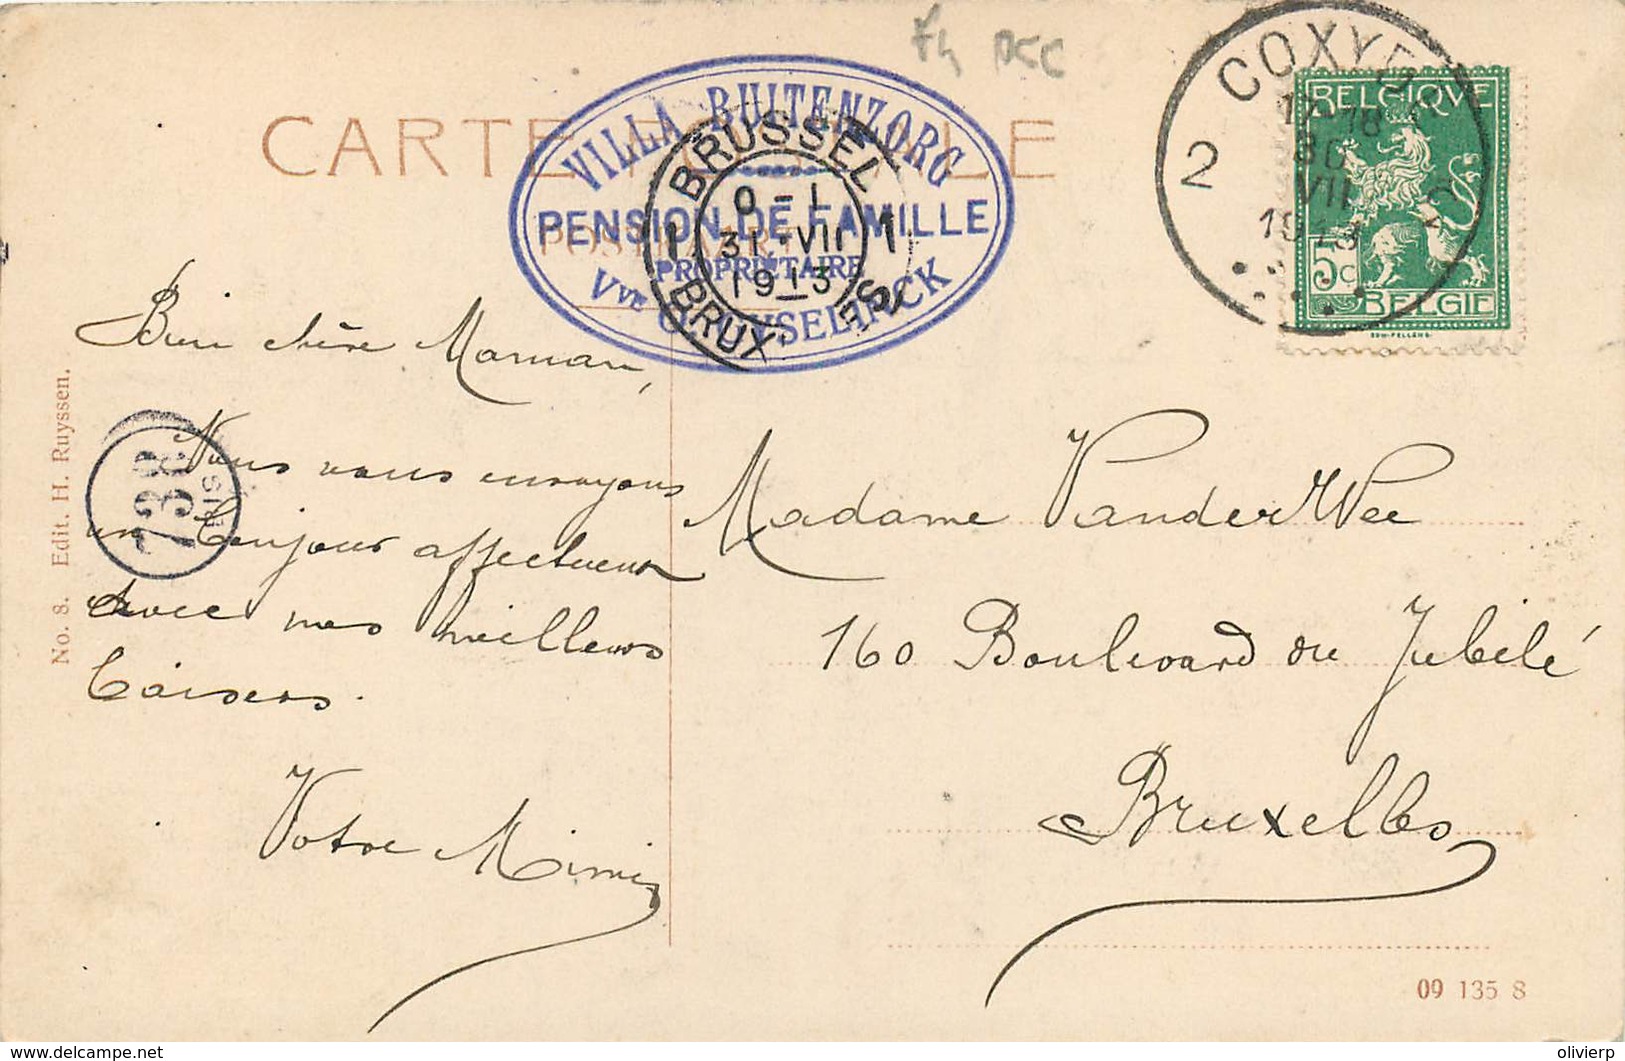 F4 DEC
CARTE POSTALE
POSTKAART
VILLA BUITENZORG
PENSION DE FAMILLE
PROPRIÉTAIRE
Vve
BRUSSEL
0-1
1 31·VII 1
1913
BRUX ES
COXYDE
2 17-18 2
30
VII
1913
BELGIQUE
5c
BELGIË
738
BIS
Bien chère Maman,
Nous vous envoyons
un bonjour affectueux
avec nos meilleurs
baisers.
Votre Mimi
Madame VanderWee
160 Boulevard du Jubilé
Bruxelles
No. 8. Edit. H. Ruyssen.
09 135 8
delcampe.net
olivierp